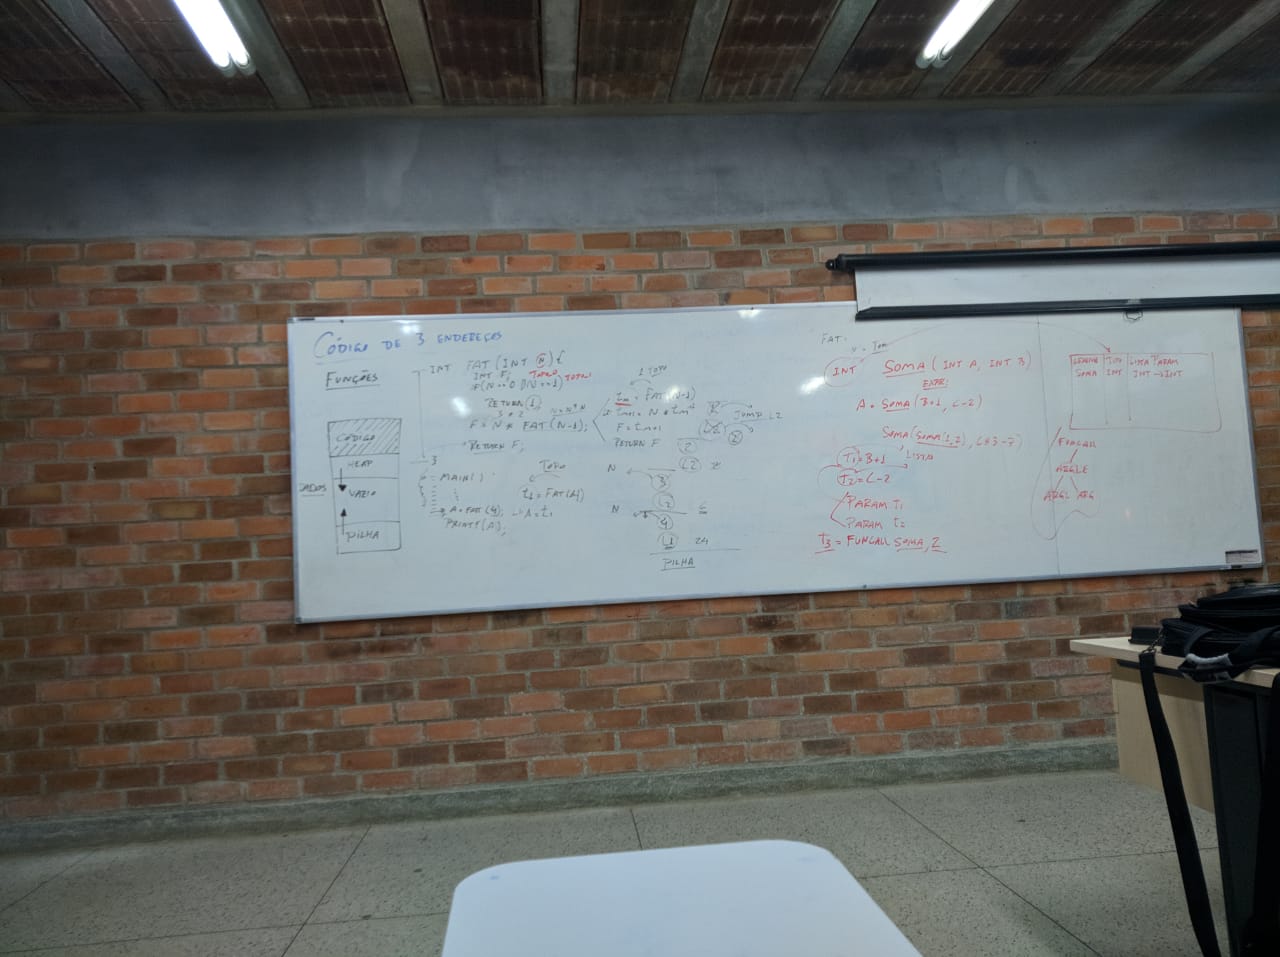 CÓDIGO DE 3 ENDEREÇOS
FUNÇÕES
CÓDIGO
HEAP
DADOS
VAZIO
PILHA
INT FAT (INT N) {
INT F;
TOPO
TOPO
RETURN 1;
F = N * FAT(N-1);
RETURN F;
}
MAIN( )
A = FAT(4);
PRINTF(A);
TOPO
t1 = FAT(4)
A = t1
TOPO
= FAT(N-1)
RETURN F
JUMP L2
2
L2
N
3
L2
N
4
L1 24
PILHA
FAT:
INT SOMA (INT A, INT B)
EXPR:
A = SOMA (B+1, C-2)
LISTA
T1 = B+1
T2 = C-2
PARAM T1
PARAM t2
T3 = FUNCALL SOMA, 2
LEXEMA TIPO LISTA PARAM
SOMA INT INT → INT
FUNCALL
ARGLE
ARGL ARG